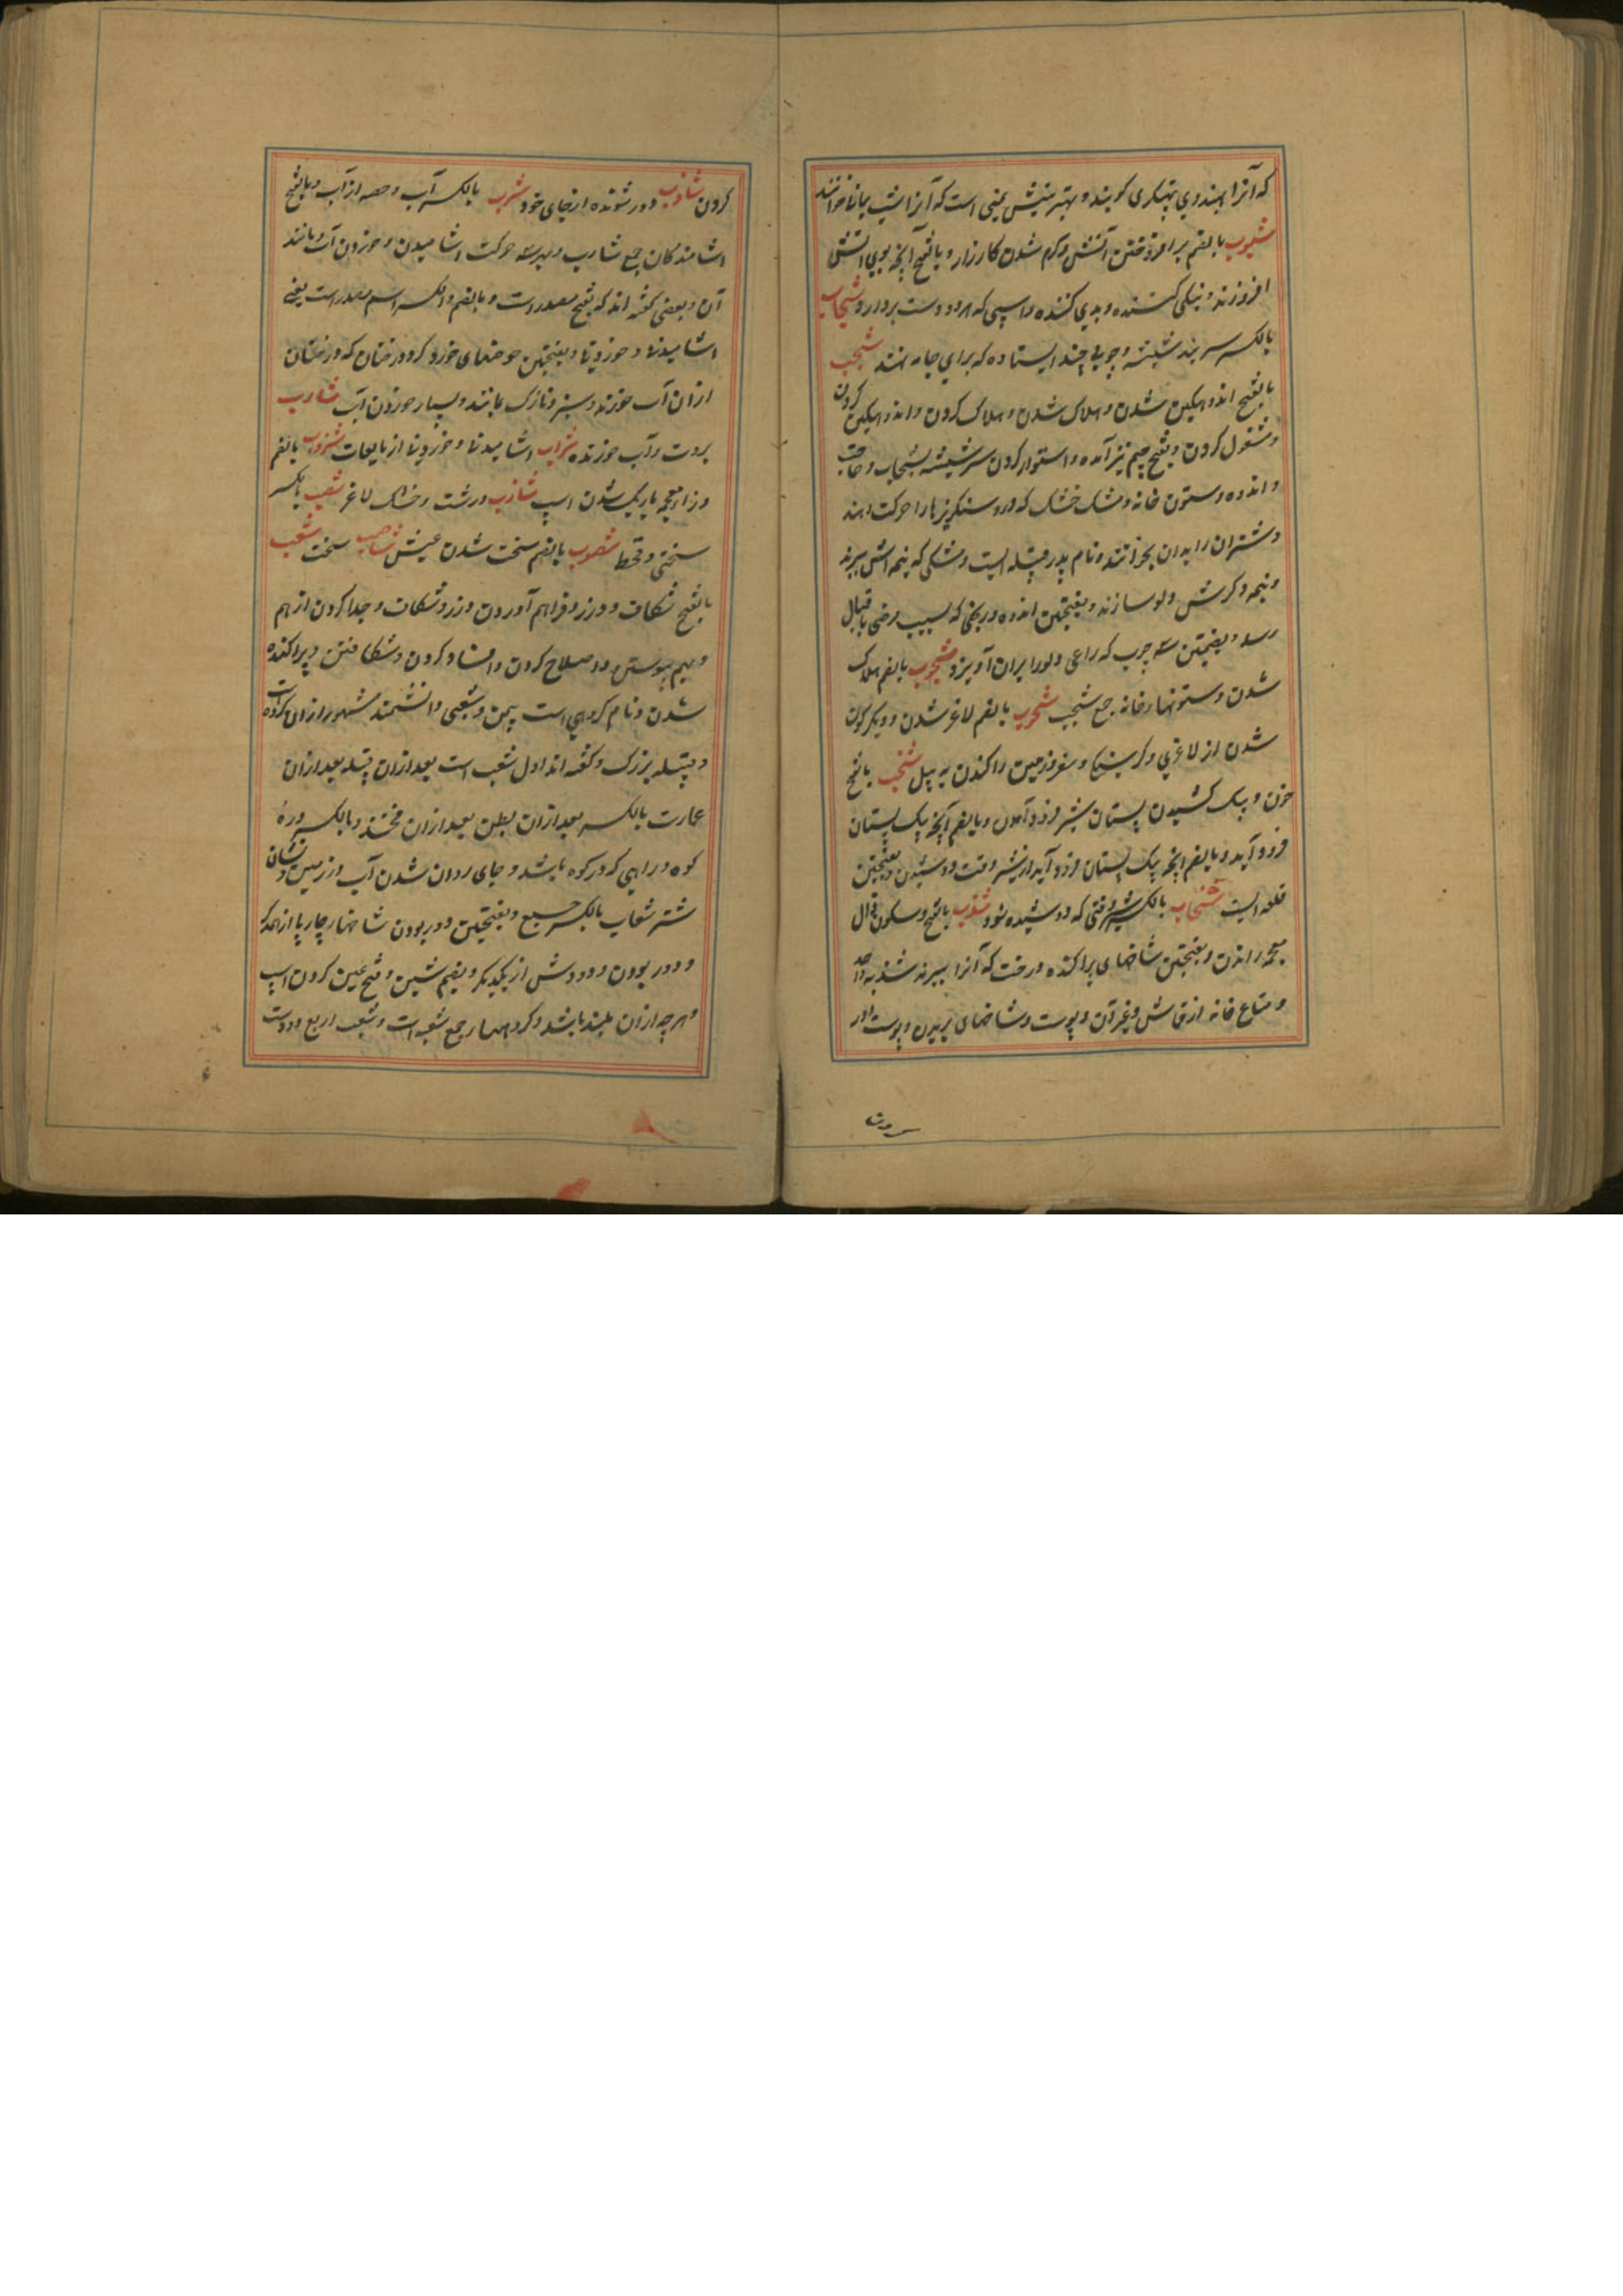 که آنرا بهندوی پتهکری گویند و بهترینش یمنی است که آنرا شب یمانی خوانند
شبوب بالضم برافروختن آتش و گرم شدن کارزار و بالفتح آنچه بوی آتش
افروزند و نیکی کننده و بدی کننده و اسپی که هر دو دست بردارد شجاب
بالکسر سربند شیشه و چوبی چند ایستاده که برای جامه نهند شجب
بالفتح اندوهگین شدن و هلاک شدن و هلاک کردن و اندوهگین کردن
و مشغول کردن و بفتح جیم نیز آمده و استوار کردن سر شیشه بشجاب و حاجت
و اندوه و ستون خانه و مشک خشک که درو سنگریزها را حرکت دهند
و شتران را بدان بخوانند و نام پدر قبیله ایست و مشکی که نیمه اش ببرند
و نیمه دگرش دلو سازند و بفتحتین اندوه و رنجی که بسبب مرضی یا قتال
رسد و بضمتین سه چوب که راعی دلو را بران آویزد شجوب بالضم هلاک
شدن و ستونهای خانه جمع شجب شحوب بالضم لاغر شدن و دیگرگون
شدن از لاغری و گرسنگی و سفر و زمین را کندن به بیل شخب بالفتح
خون و یک کشیدن پستان شیر فرود آمدن و بالضم آنچه بیک پستان
فرود آید و بالضم آنچه بیک پستان فرود آید از شیر وقت دوشیدن و بفتحتین
قلعه ایست شخاب بالکسر شیر وقتی که دوشیده شود شذب بالفتح و سکون ذال
معجمه راندن و بفتحتین شاخهای پراکنده درخت که آنرا ببرند شذبه واحد
و متاع خانه از قماش و غیر آن و پوست و شاخهای بریدن و پوست دور
کردن شاذب دور شونده از جای خود شرب بالکسر آب و حصه از آب و بالفتح
اشامندگان جمع شارب و بهر سه حرکت اشامیدن و خوردن آب و مانند
آن و بعضی گفته اند که بفتح مصدر است و بالضم و الکسر اسم مصدر است یعنی
اشامیدنها و خوردنیها و بفتحتین حوضهای خورد گرد درختان که درختان
ازان آب خورند و سبز و نازک مانند و بسیار خوردن آب شارب
بروت و آب خورنده شراب اشامیدنها و خوردنیها از مایعات شزوب بالضم
و زاء معجمه باریک شدن اسپ شازب درشت و خشک لاغر شصب بالکسر
سختی و قحط شصوب بالضم سخت شدن عیش شاصب سخت شعب
بالفتح شکاف و درز و فراهم آوردن درز و شکاف و جدا کردن از هم
و بهم پیوستن و اصلاح کردن و افساد کردن و شکافتن و پراکنده
شدن و نام گروهی است بیمن و شعبی دانشمند مشهور ازان گروه است
و قبیله بزرگ و گفته اند اول شعب است بعد ازان قبیله بعد ازان
عمارت بالکسر بعد ازان بطن بعد ازان فخذ و بالکسر دره
کوه و راهی که در کوه باشد و جای روان شدن آب در زمین و نشان
شتر شعاب بالکسر جمع و بفتحتین دور بودن شاخهای چارپا از همدگر
و دور بودن دو دوش از یکدیگر و بضم شین و فتح عین گردن اسپ
و هر چه ازان بلند باشد و گروهها جمع شعبه است و شعب اربع دو دست
کردن